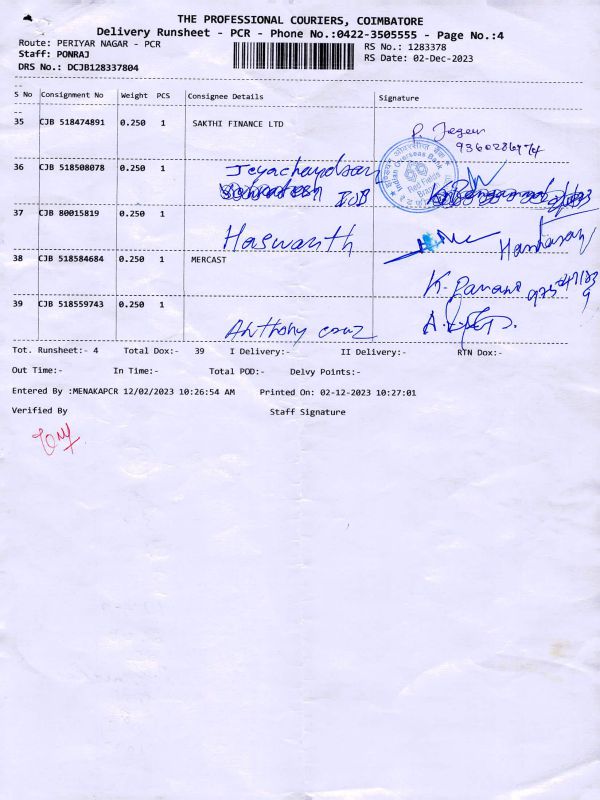 THE PROFESSIONAL COURIERS, COIMBATORE
Delivery Runsheet - PCR - Phone No.:0422-3505555 - Page No.:4
Route: PERIYAR NAGAR - PCR
RS No.: 1283378
Staff: PONRAJ
RS Date: 02-Dec-2023
DRS No.: DCJB128337804
S No Consignment No Weight PCS Consignee Details Signature
35 CJB 518474891 0.250 1 SAKTHI FINANCE LTD
P. Jegan
36 CJB 518508078 0.250 1 Jeyachandran
IOB
Indian Overseas Bank
Red Fields
37 CJB 80015819 0.250 1
Haswanth
38 CJB 518584684 0.250 1 MERCAST
39 CJB 518559743 0.250 1
Anthony cruz
Tot. Runsheet:- 4 Total Dox:- 39 I Delivery:- II Delivery:- RTN Dox:-
Out Time:- In Time:- Total POD:- Delvy Points:-
Entered By :MENAKAPCR 12/02/2023 10:26:54 AM Printed On: 02-12-2023 10:27:01
Verified By Staff Signature